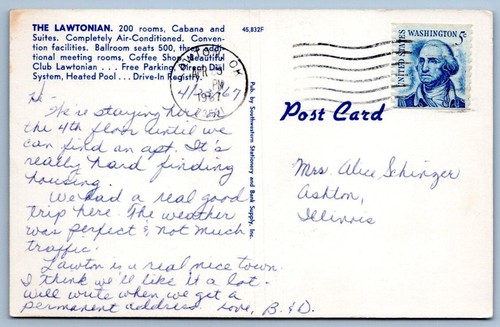 THE LAWTONIAN. 200 rooms, Cabana and
Suites. Completely Air-Conditioned. Conven-
tion facilities. Ballroom seats 500, three addi-
tional meeting rooms, Coffee Shop, Beautiful
Club Lawtonian . . . Free Parking, Direct Dial
System, Heated Pool . . . Drive-In Registry.
45,832F
4/23/67
Hi-
We're staying here on
the 4th floor until we
can find an apt. It's
really hard finding
housing.
We had a real good
trip here. The weather
was perfect & not much
traffic.
Lawton is a real nice town.
I think we'll like it a lot.
Will write when we get a
permanent address. Love, B. & D.
Pub. by Southwestern Stationery and Bank Supply, Inc.
LAWTON, OK
PM
1967
UNITED STATES
WASHINGTON 5c
Post Card
Mrs. Alice Schinzer
Ashton,
Illinois